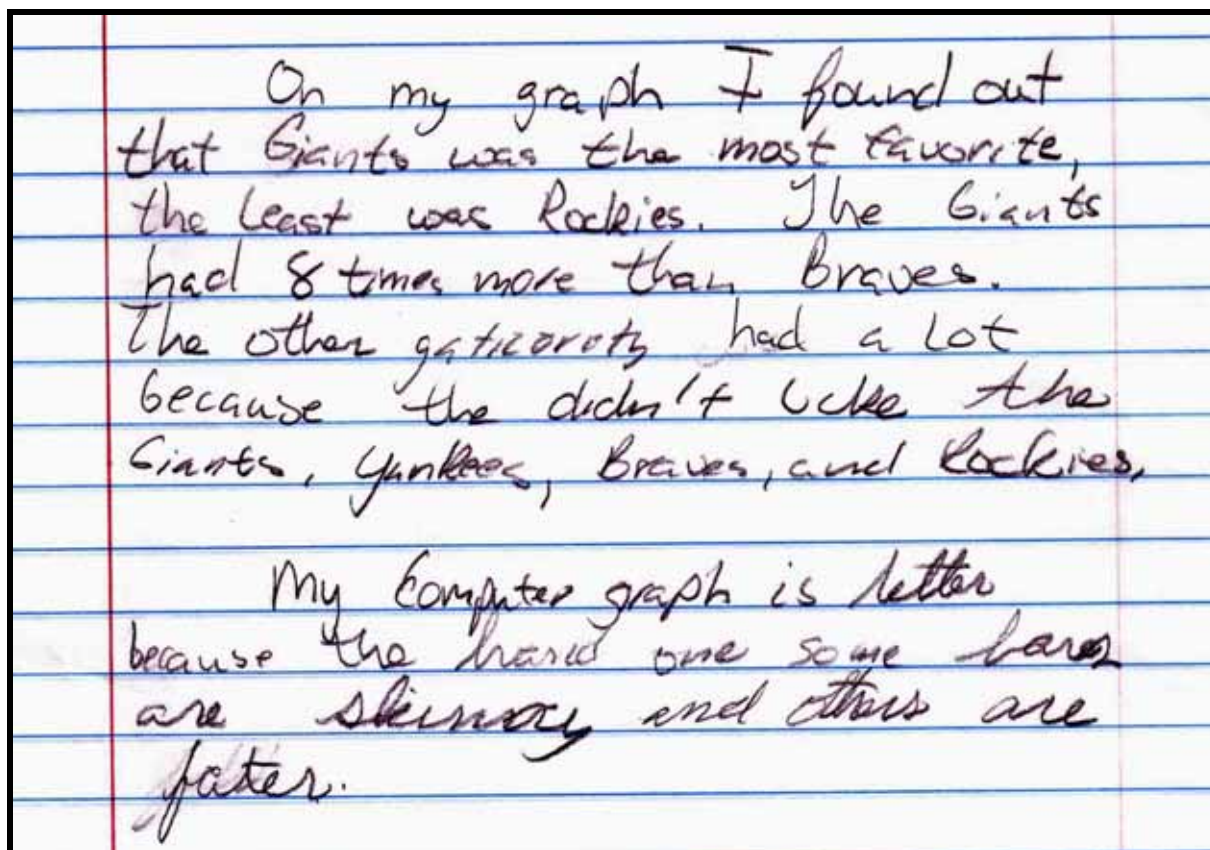 On my graph I found out
that Giants was the most favorite,
the least was Rockies. The Giants
had 8 times more than Braves.
The other had a lot
because the didn't like the
Giants, Yankees, Braves, and Rockies.
My Computer graph is better
because the hand one some bares
are skinny and others are
fater.